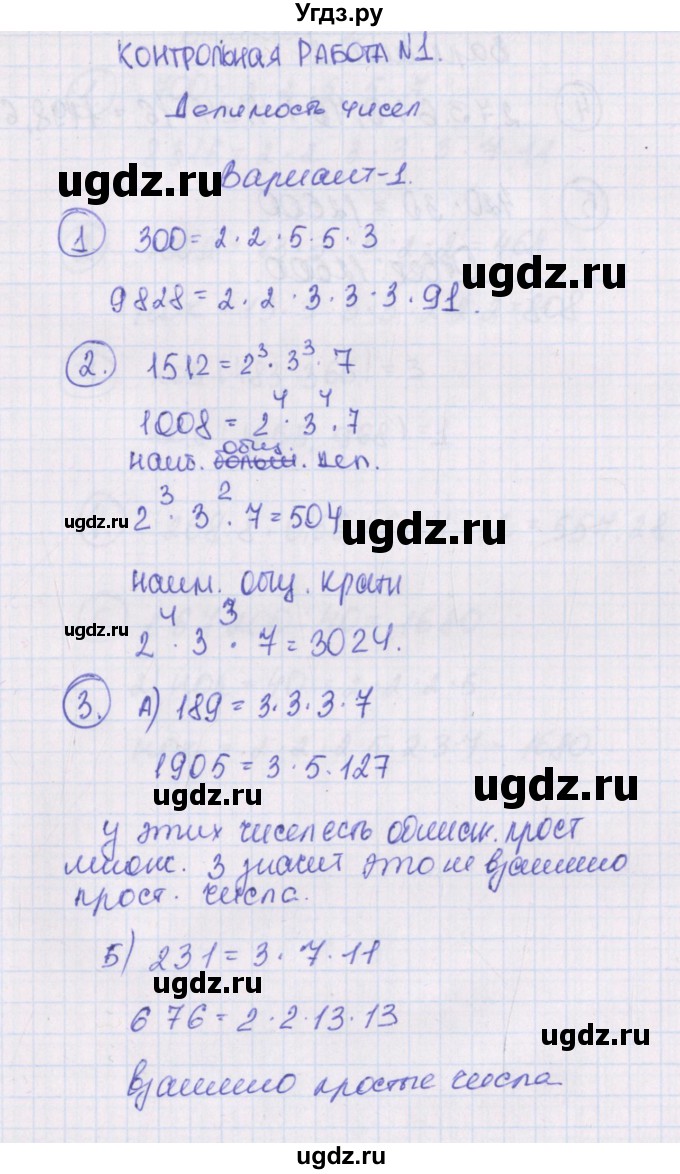 Угдз.ру
КОНТРОЛЬНАЯ РАБОТА №1.
Делимость чисел
ugdz.ru
Вариант-1.
1 300 = 2 · 2 · 5 · 5 · 3
ugdz.ru
9828 = 2 · 2 · 3 · 3 · 3 · 91.
2. 1512 = 2³ · 3³ · 7
1008 = 2⁴ · 3⁴ · 7
общ.
наиб. больш. дел.
ugdz.ru 2³ · 3² · 7 = 504
ugdz.ru
наим. общ. кратн
ugdz.ru
2⁴ · 3³ · 7 = 3024.
3. А) 189 = 3 · 3 · 3 · 7
1905 = 3 · 5 · 127
ugdz.ru ugdz.ru
у этих чисел есть одинак. прост
множ. 3 значит это не взаимно
прост. числа.
Б) 231 = 3 · 7 · 11
ugdz.ru
676 = 2 · 2 · 13 · 13
ugdz.ru
взаимно простые числа
ugdz.ru